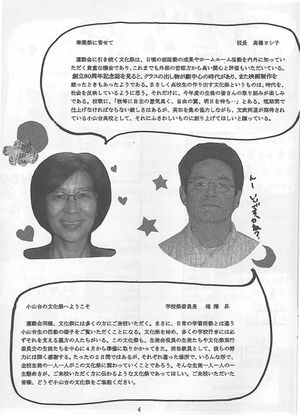 寒菊祭に寄せて　校長　高橋ヨシ子
運動会に引き続く文化祭は、日頃の班活動の成果やホームルーム活動を内外に知ってい
ただく貴重な機会であり、これまでも外部の皆様方から高い関心と評価もいただいている。
創立80周年記念誌を見ると、クラスの出し物が劇中心の時代があり、また映画制作を
競ったときもあったようである。まさしく高校生の作り出す文化祭というものは、時代を、
社会を反映しているように思う。それだけに、今年度の生徒の皆さんの取り組みが楽しみ
である。校歌に、「牧琴に自由の意気高く、自由の翼、明日を待ち…」とある。短期間で
仕上げなければならない厳しさはあるが、英知を集め協力しながら、文武両道が期待され
ている小山台高校として、それにふさわしいものに創り上げてほしいと願っている。
小山台の文化祭へようこそ　学校祭委員長　滝澤　昇
運動会同様、文化祭には多くの方にご来校いただく。まさに、日常の学習活動とは違う
小山台生の活動の様子をご覧いただくことになる。文化祭を始め、多くの学校行事には必
ずそれを支える裏方の人たちがいる。この文化祭も、生徒会役員の生徒たちや文化祭実行
委員会の生徒たちを中心に4月から準備に取りかかってきた。担当教員として、彼らの努
力には深く感謝する。たったの2日間ではあるが、それぞれ違った場所で、いろんな形で、
全校生徒の一人一人がこの文化祭に関わっていくことであろう。そんな生徒一人一人の一
生懸命さが、ご来校いただく方に伝わるような文化祭であってほしい。ご来校いただいた
皆様、どうぞ小山台の文化祭をご堪能ください。
4